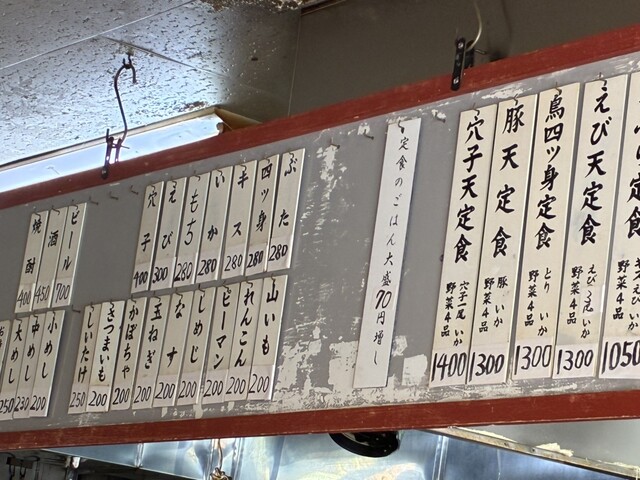 えび天定食
えび2尾 いか
野菜4品
1300
鳥四ツ身定食
とり いか
野菜4品
1300
豚天定食
豚 いか
野菜4品
1300
穴子天定食
穴子一尾 いか
野菜4品
1400
1050
定食のごはん大盛70円増し
ぶた
280
四ツ身
280
キス
280
いか
280
もち
280
えび
300
穴子
400
ビール
700
酒
450
焼酎
400
山いも
200
れんこん
200
ピーマン
200
しめじ
200
なす
200
玉ねぎ
200
かぼちゃ
200
さつまいも
200
しいたけ
250
小めし
200
中めし
230
大めし
250